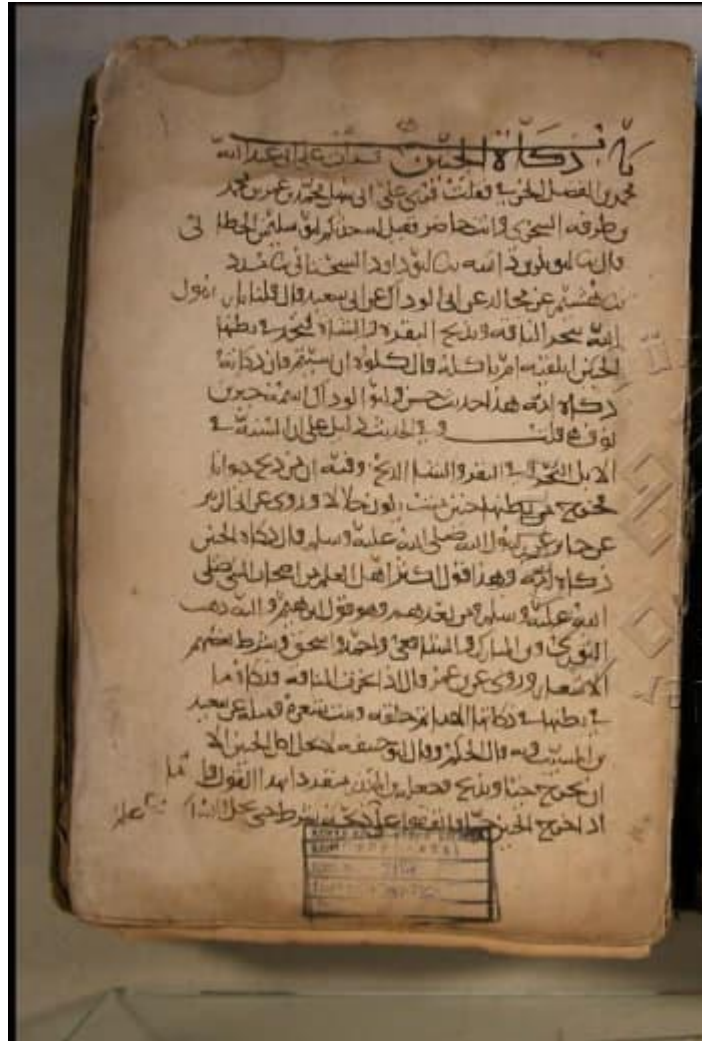 باب ذكاة الجنين قرأت على ابي عبد الله
محمد بن الفضل قلت قرى على ابي سهل محمد بن عمر بن محمد
بن طرفه السجزي وانت حاضر فقيل له حدثكم ابو سليمن الخطابي
قال ابو بكر بن داسه ابو داود السجستاني مسدد
هشيم عن مجالد عن ابي الوداك عن ابي سعيد قال قلنا يا رسول
الله ننحر الناقه ونذبح البقره والشاه في بطنها
الجنين انلقيه ام ناكله قال كلوه ان شيتم فان ذكاته
ذكاه امه هذا حديث حسن وابو الوداك اسمه جبر بن
نوف قلت وفي الحديث دليل على ان السنة في
الابل النحر وفي البقر والشا الذبح وفيه ان من ذبح حيوانا
فخرج من بطنها جنين ميت يكون حلالا وروى عن ابي الزبير
عن جابر عن رسول الله صلى الله عليه وسلم قال ذكاه الجنين
ذكاه امه وهذا قول اكثر اهل العلم من اصحاب النبي صلى
الله عليه وسلم ومن بعدهم وهو قول ابرهيم واليه ذهب
الثوري وبن المبارك والشافعي واحمد واسحق وشرط بعضهم
الاشعار وروى عن بن عمر قال اذا نحرت الناقه فذكاه ما
في بطنها في ذكاتها اذا تم خلقه ونبت شعره ومثله عن سعيد
بن المسيب وبه قال الحكم وقال ابو حنيفه لا يحل اكل الجنين الا
ان يخرج حيا ويذبح بن المنذر متفردا بهذا القول
اذا خرج الجنين حيا واتفقوا على